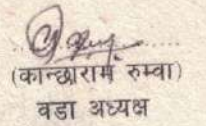 (कान्छाराम रुम्वा)
वडा अध्यक्ष